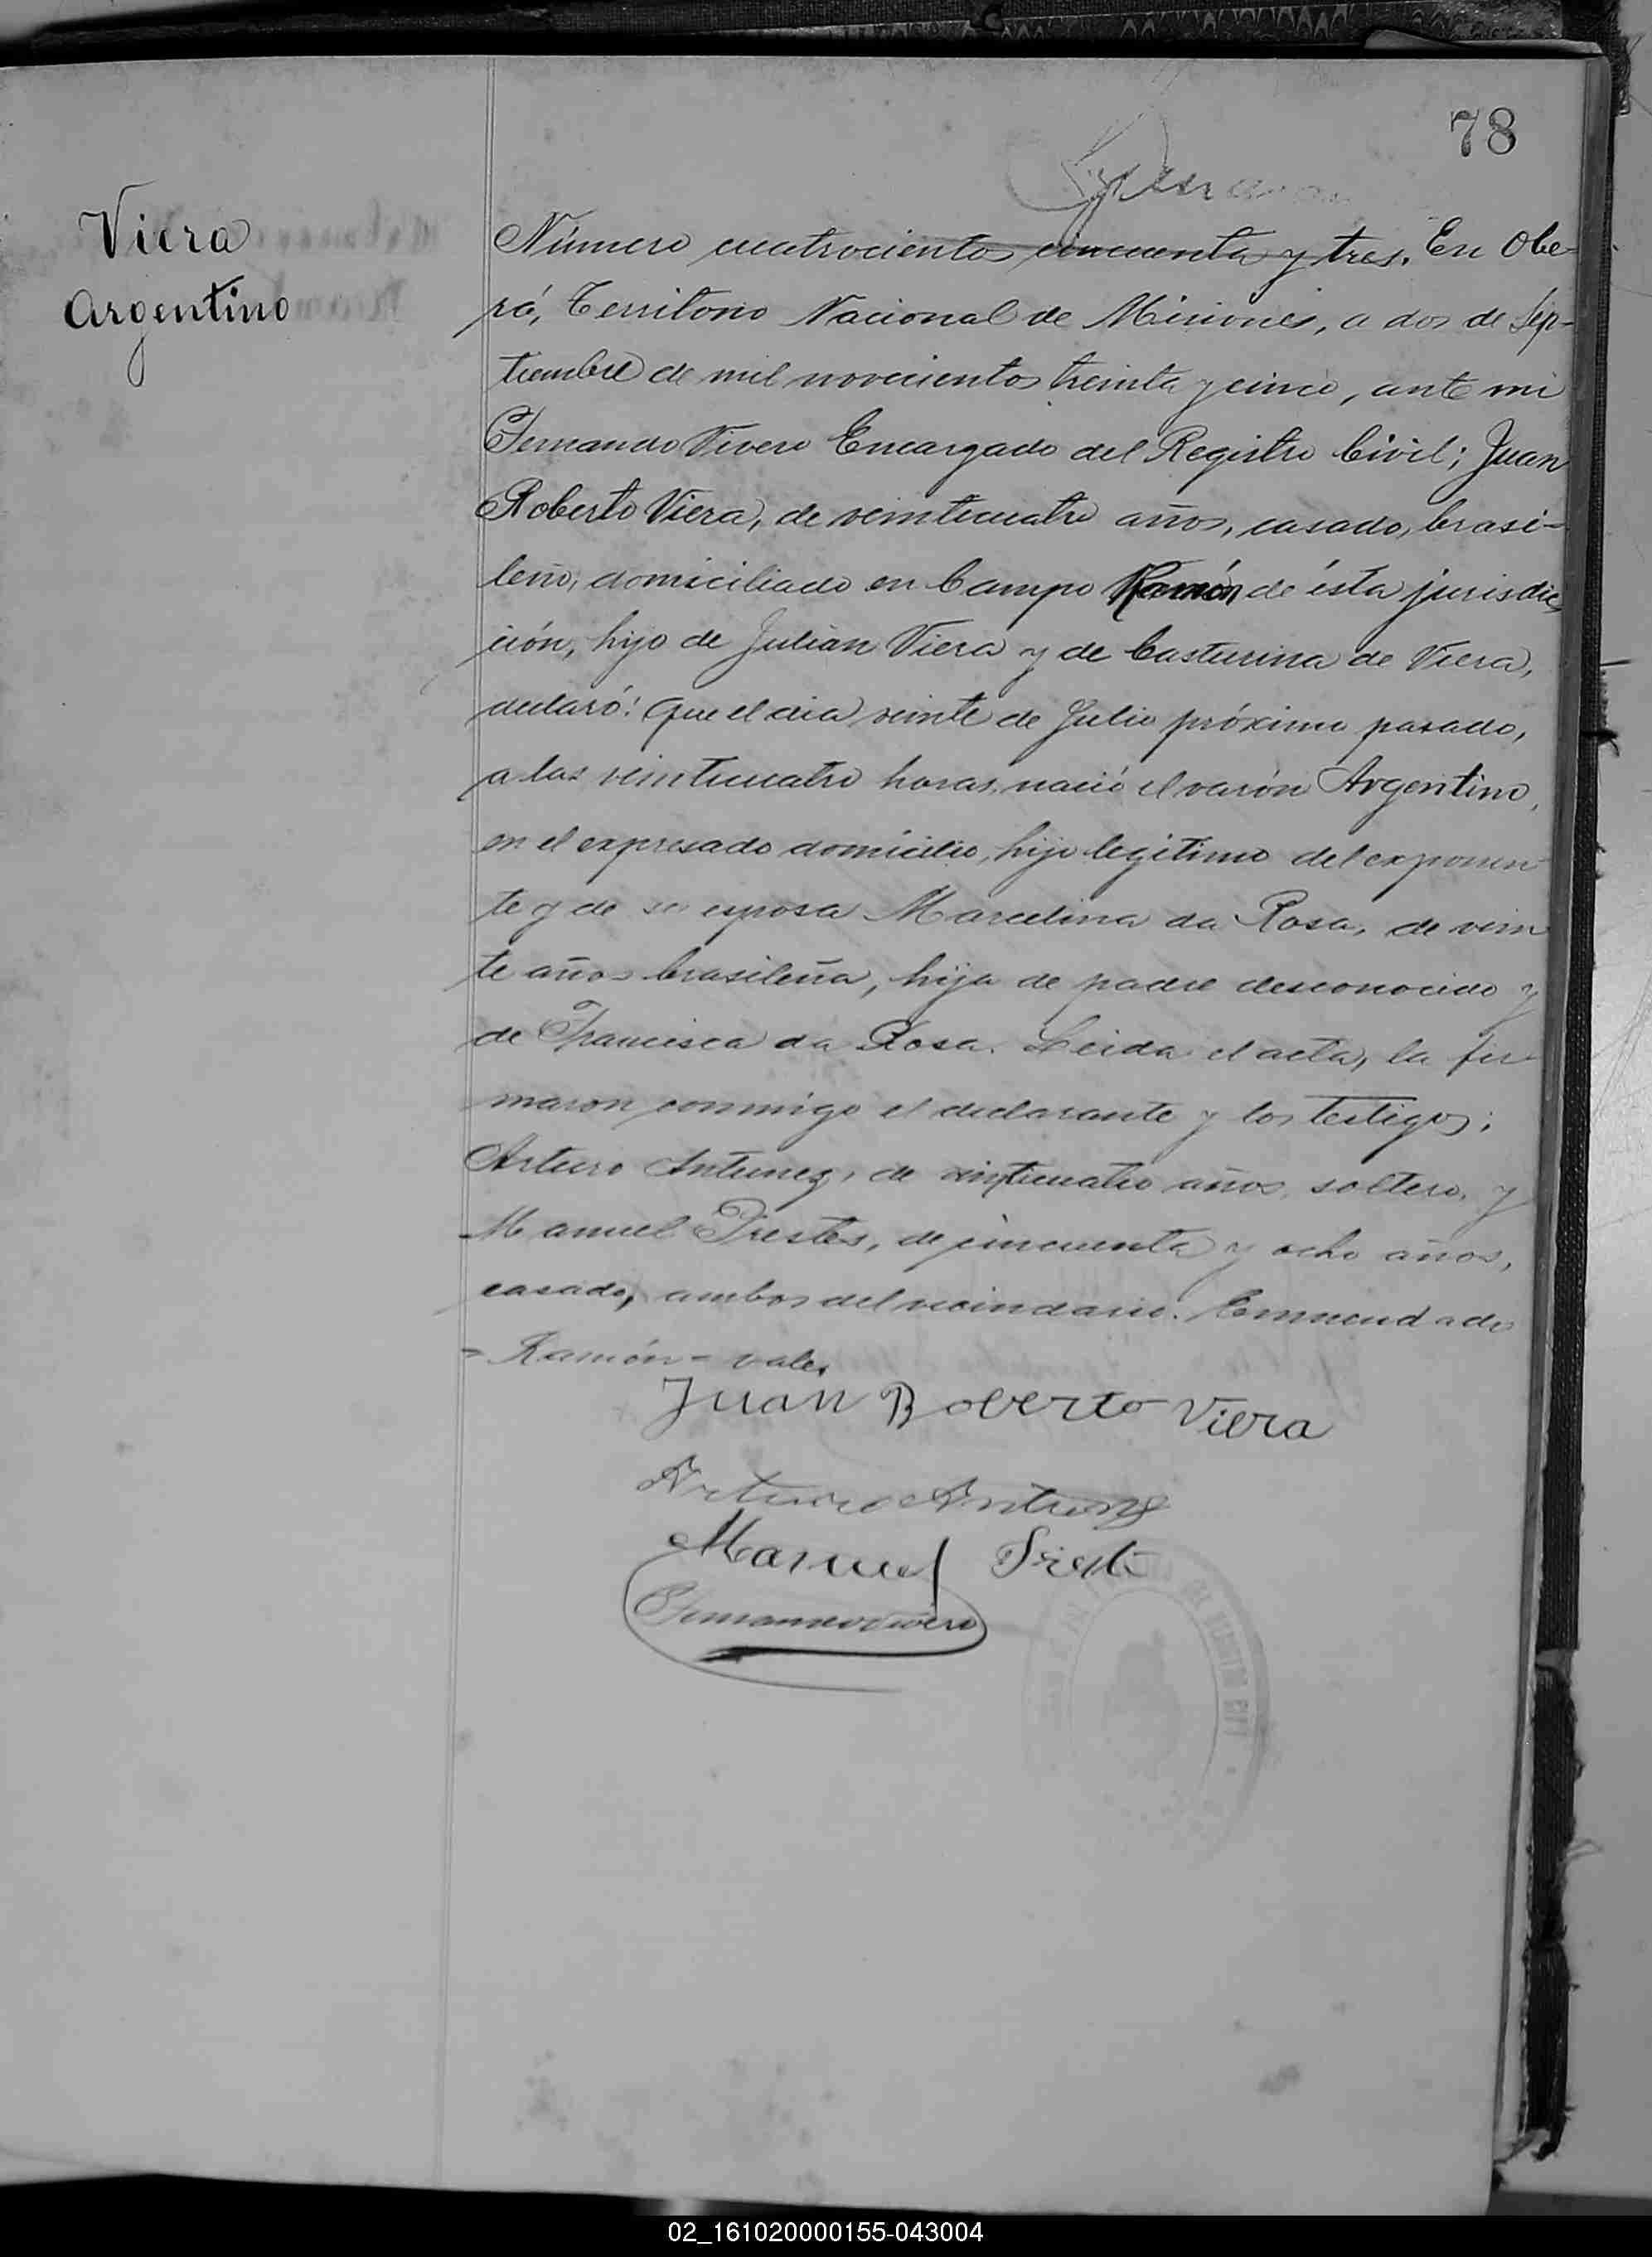 78
Viera
Argentino
Número cuatrocientos cincuenta y tres. En Obe-
rá, Territorio Nacional de Misiones, a dos de Sep-
tiembre de mil novecientos treinta y cinco, ante mi
Fernando Vivero Encargado del Registro Civil; Juan
Roberto Viera, de veinticuatro años, casado, brasi-
leño, domiciliado en Campo Ramón de ésta jurisdic
ción, hijo de Julián Viera y de Casturina de Viera,
declaró: Que el dia veinte de Julio próximo pasado,
a las veinticuatro horas, nació el varón Argentino,
en el expresado domicilio, hijo legítimo del exponen
te y de su esposa Marcelina da Rosa, de vein
te años brasileña, hija de padre desconocido y
de Francisca da Rosa. Leida el acta, la fir
maron conmigo el declarante y los testigos;
Arturo Antunez, de veinticuatro años, soltero, y
Manuel Prestes, de cincuenta y ocho años,
casado, ambos del vecindario. Enmendado
= Ramón = vale.
Juan Roberto Viera
Arturo Antunez
Manuel Prest
Fernando Vivero
02_161020000155-043004